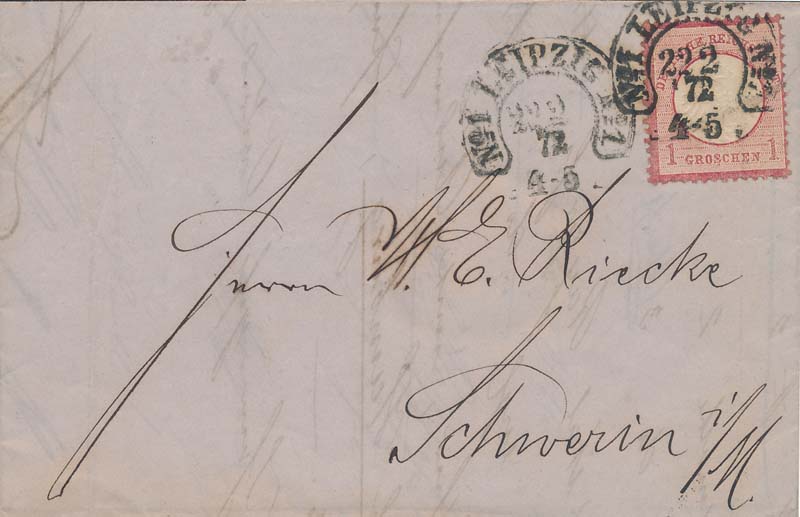 No 1 LEIPZIG No 1
22 2
72
4-5
No 1 LEIPZIG No 1
22 2
72
4-5
1 GROSCHEN 1
Herrn W. E. Riecke
Schwerin i/M.